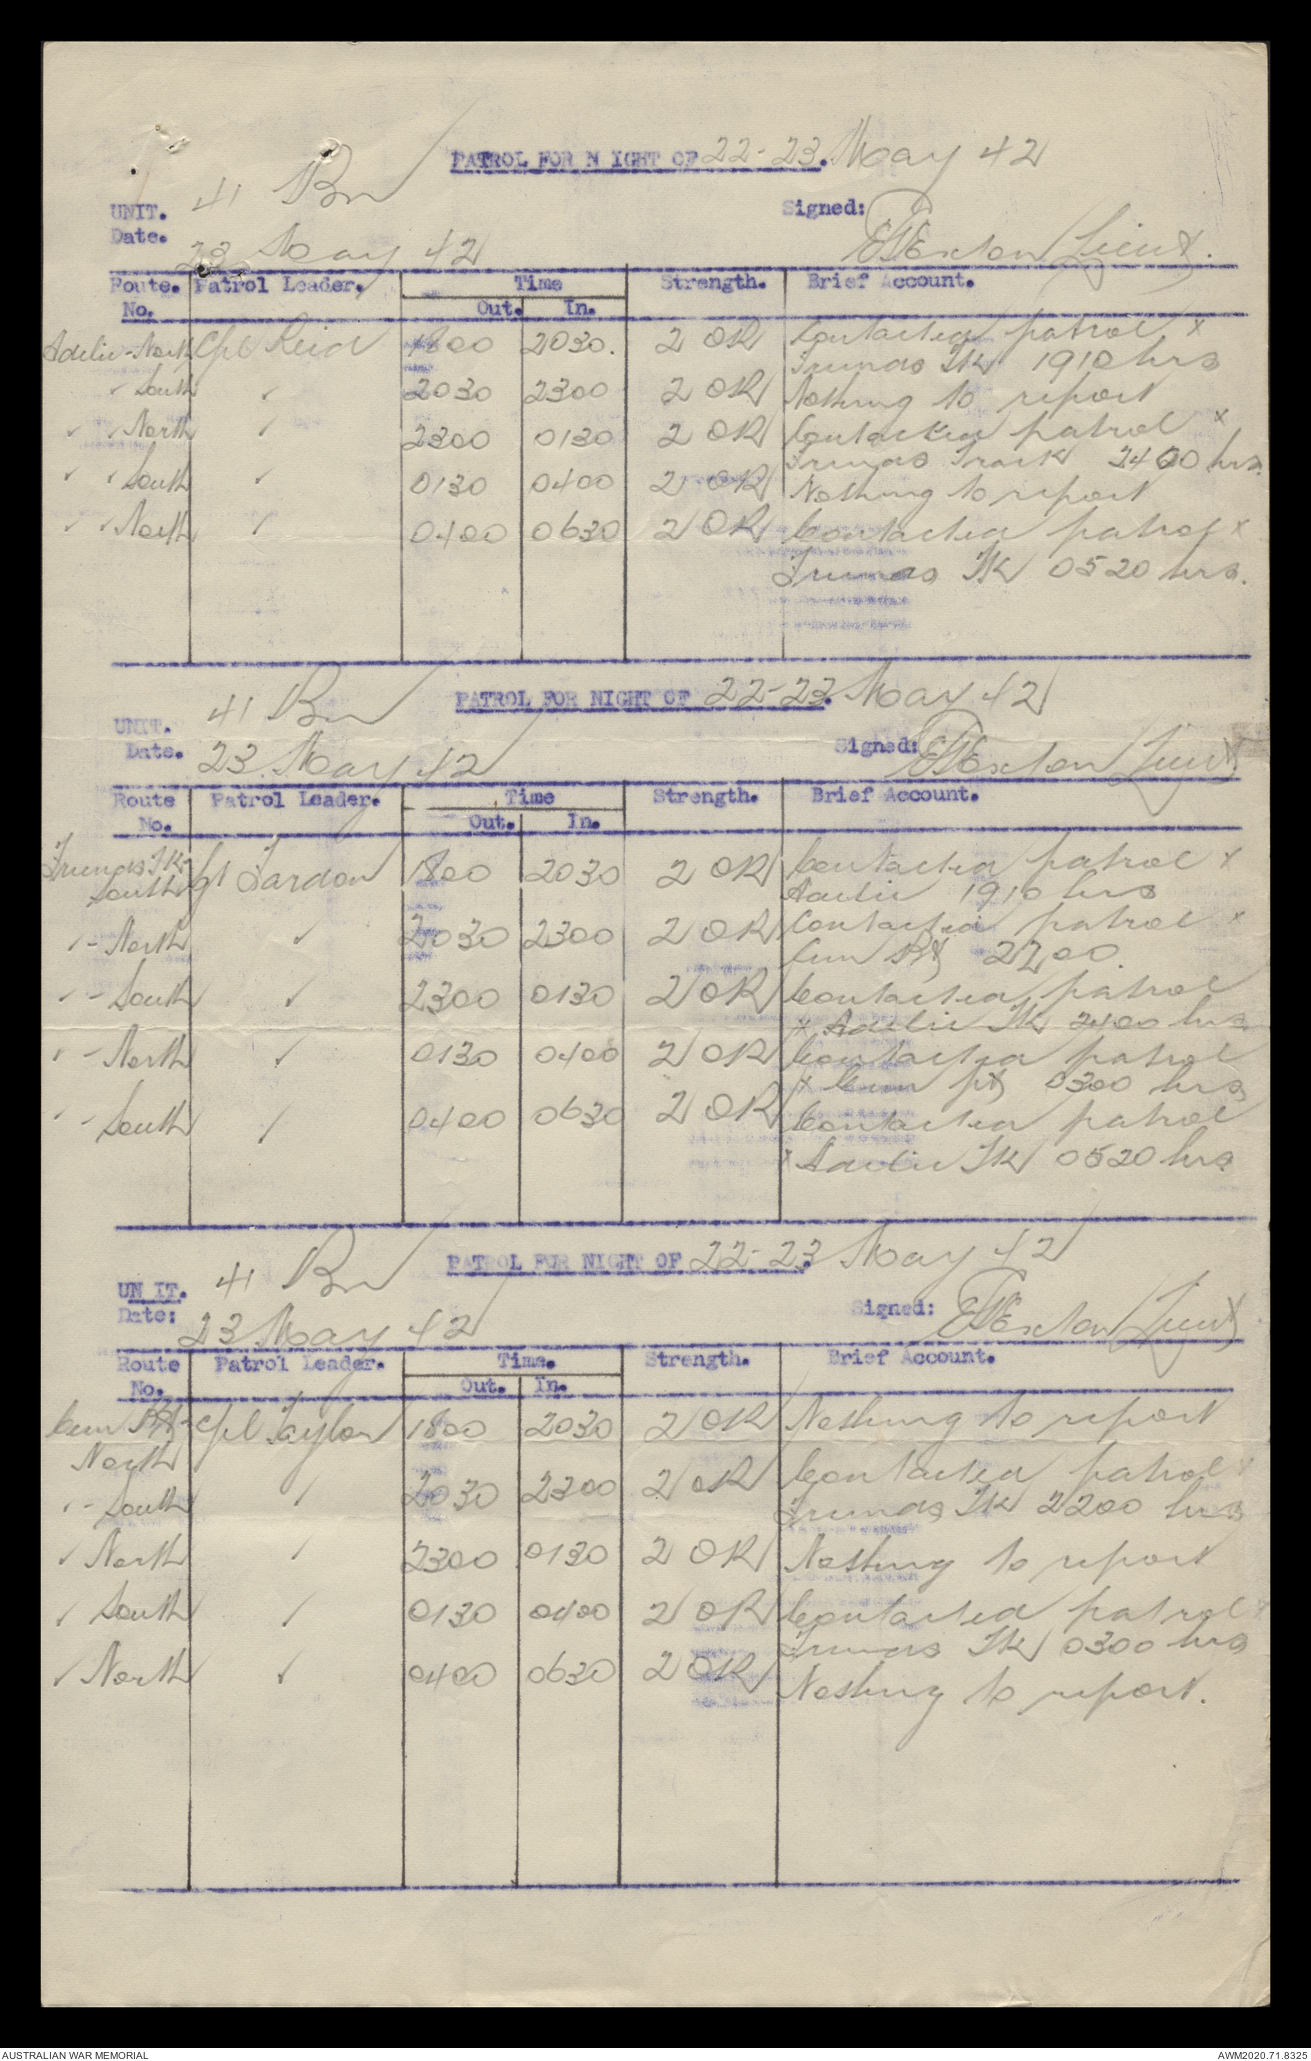 PATROL FOR N IGHT OF 22-23. May 42
UNIT. 41 Bn
Signed:
Date. 23 May 42
Lieut.
Route. No. Patrol Leader. Time Out. In. Strength. Brief Account.
Adelie-North Cpl Reid 1800 2030. 2 OR Contacted patrol x
Trunas TK 1910 hrs
" South " 2030 2300 2 OR Nothing to report
" " North " 2300 0130 2 OR Contacted patrol x
Trunas Track 2400 hrs
" " South " 0130 0400 2 OR Nothing to report
" " North " 0400 0630 2 OR Contacted patrol x
Trunas TK 0520 hrs.
PATROL FOR NIGHT OF 22-23. May 42
UNIT. 41 Bn
Signed: Lieut
Date. 23. May 42
Route No. Patrol Leader. Time Out. In. Strength. Brief Account.
Trunas TK- South 1800 2030 2 OR Contacted patrol x
Adelie 1910 hrs
" - North " 2030 2300 2 OR Contacted patrol x
2200.
" - South " 2300 0130 2 OR Contacted patrol
x Adelie TK 2400 hrs
" - North " 0130 0400 2 OR Contacted patrol
x 0300 hrs
" - South " 0400 0630 2 OR Contacted patrol
x Adelie TK 0520 hrs
PATROL FOR NIGHT OF 22-23. May 42
UN IT. 41 Bn
Signed: Lieut
Date: 23 May 42
Route No. Patrol Leader. Time. Out. In. Strength. Brief Account.
North Cpl Taylor 1800 2030 2 OR Nothing to report
" - South " 2030 2300 2 OR Contacted patrol x
Trunas TK 2200 hrs
" North " 2300 0130 2 OR Nothing to report
" South " 0130 0400 2 OR Contacted patrol x
Trunas TK 0300 hrs
" North " 0400 0630 2 OR Nothing to report.
AUSTRALIAN WAR MEMORIAL
AWM2020.71.8325